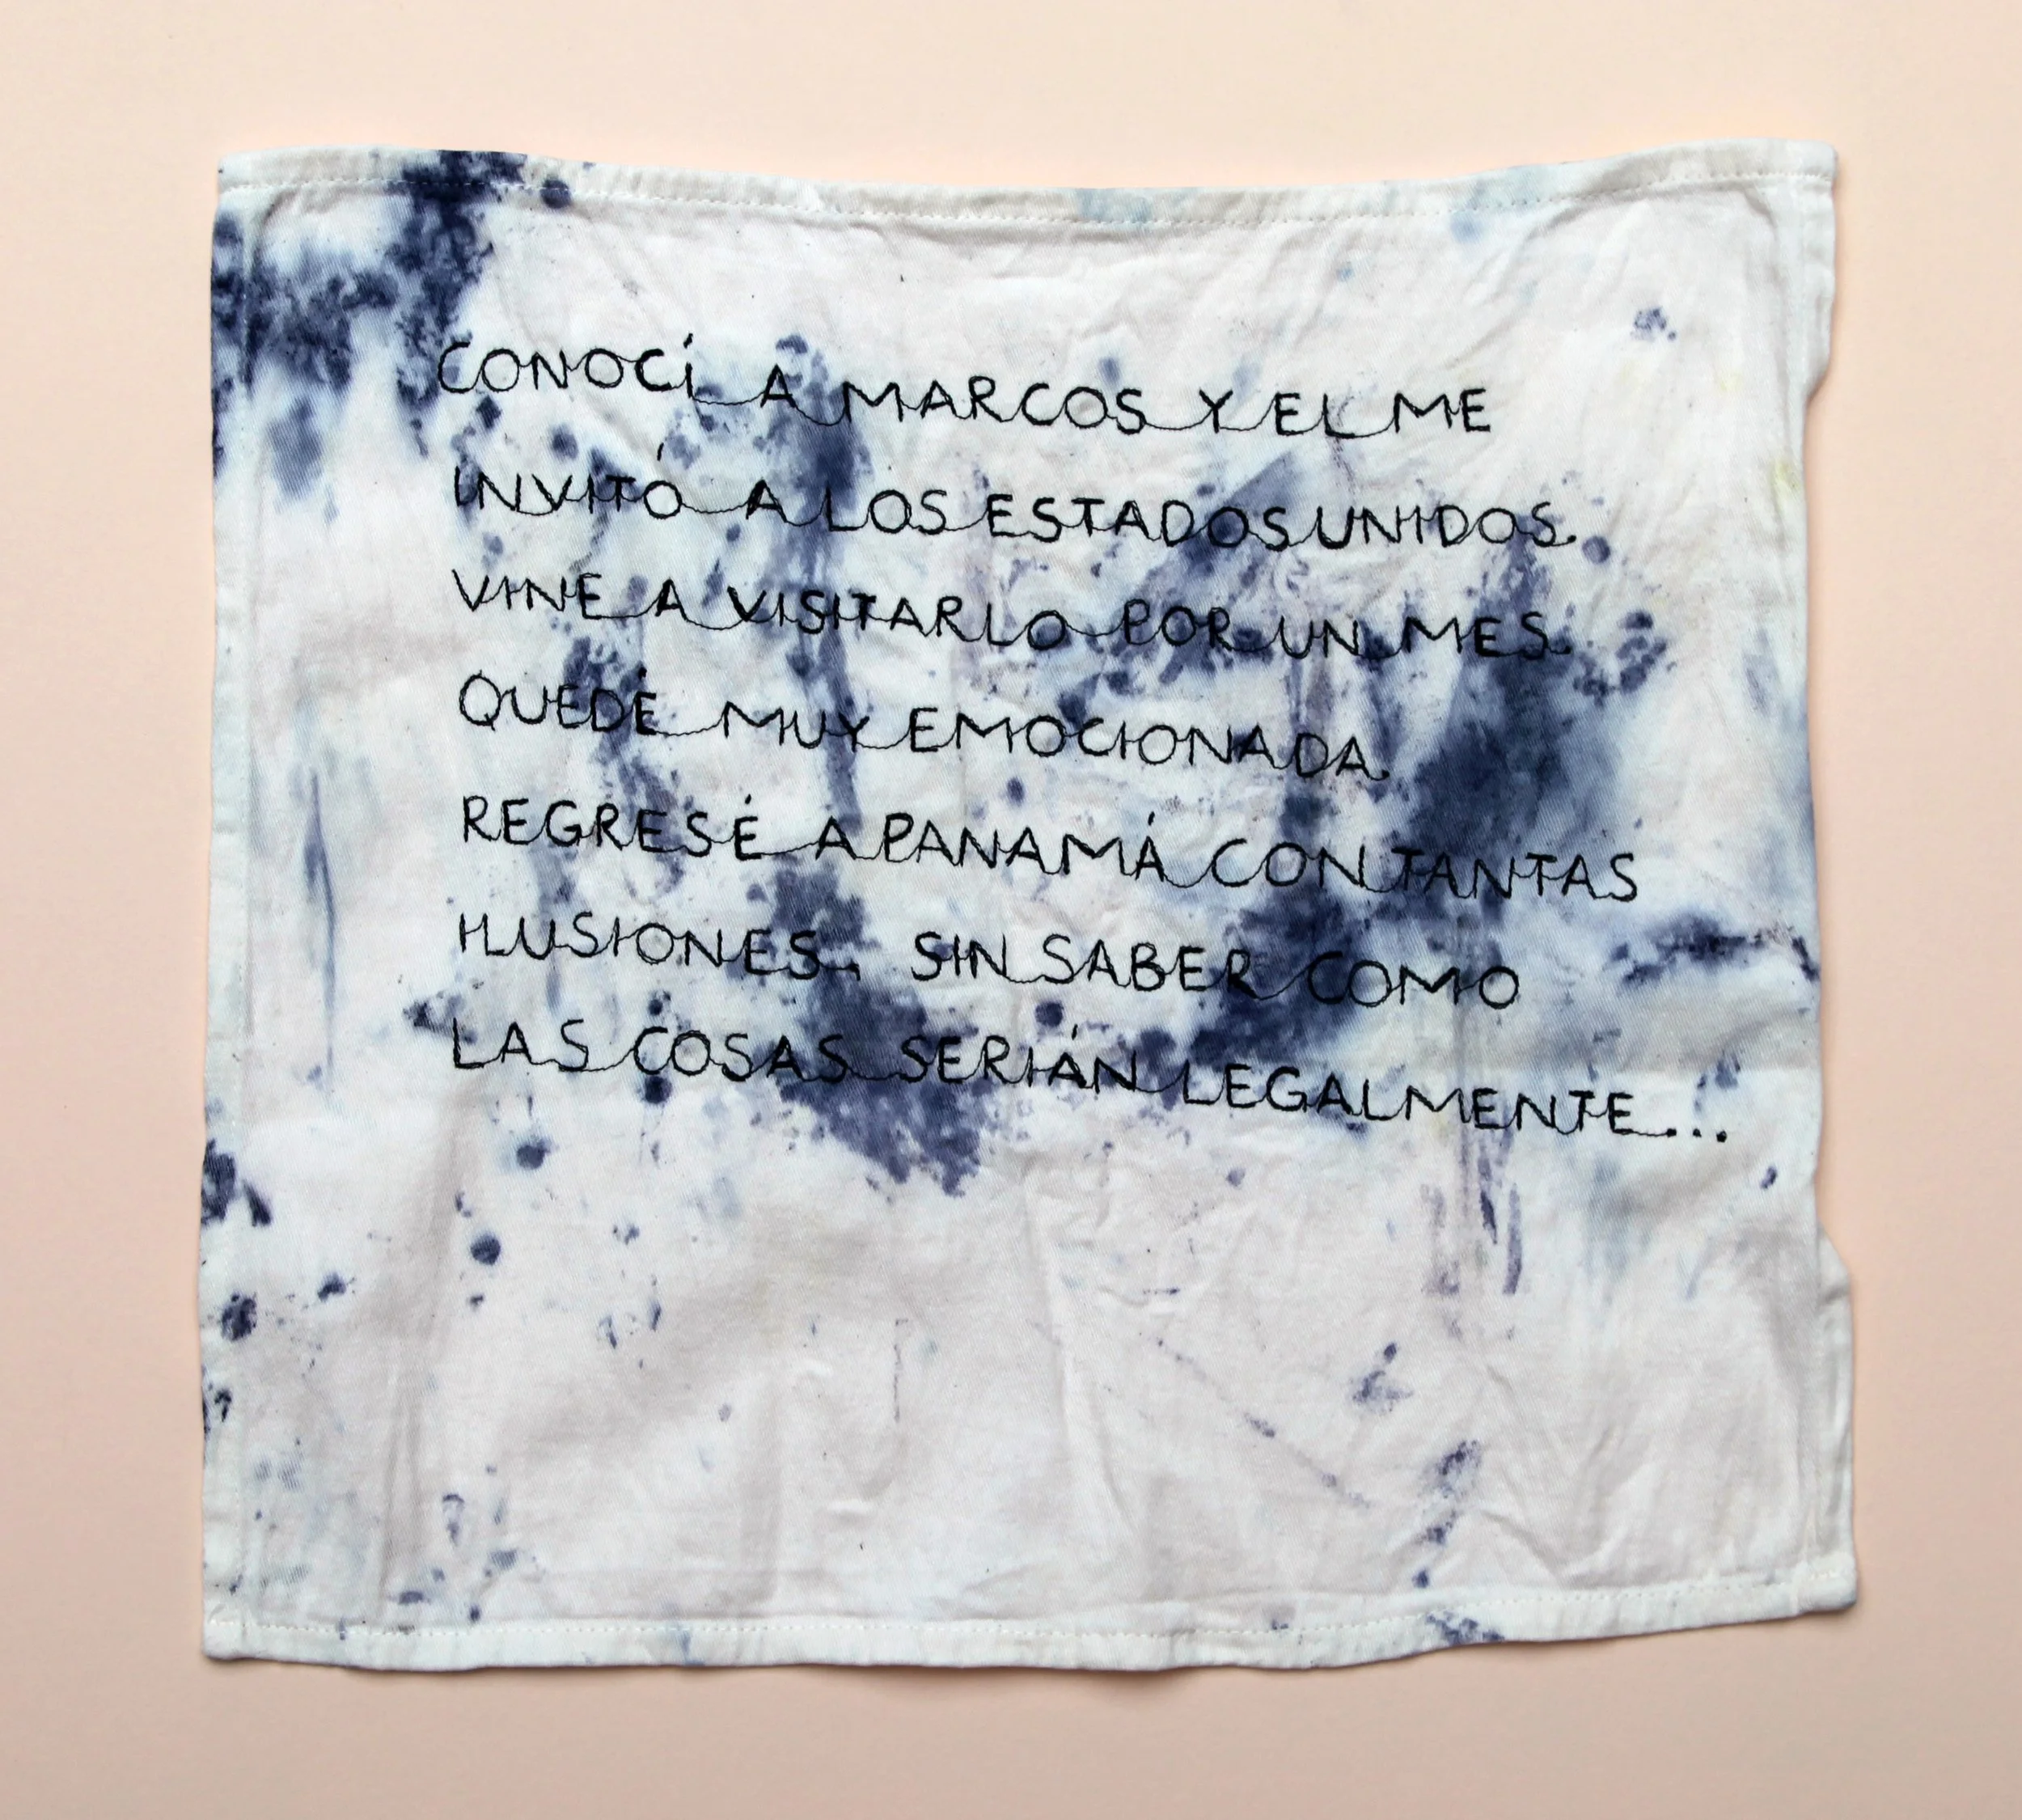 CONOCÍ A MARCOS Y EL ME
INVITÓ A LOS ESTADOS UNIDOS.
VINE A VISITARLO POR UN MES.
QUEDÉ MUY EMOCIONADA.
REGRESÉ A PANAMÁ CON TANTAS
ILUSIONES, SIN SABER COMO
LAS COSAS SERIÁN LEGALMENTE...